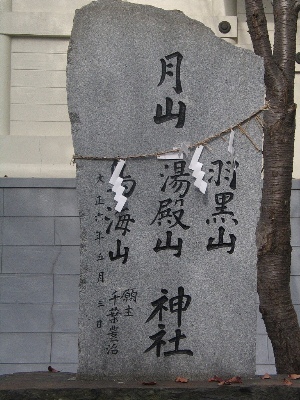 羽黒山
月山
湯殿山 神社
海山
願主
千葉豊治
大正六年五月三日